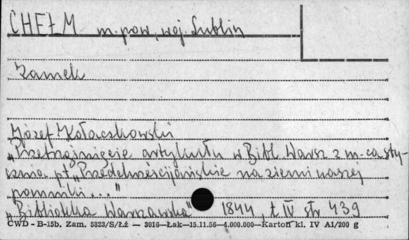 CHEŁM m. pow., woj. Lublin
Zamek
Józef Kołaczkowski
artykułu w Bibl. Warsz. z m-ca sty-
cznia pt. "Przedchrześcijańskie na ziemi naszej
pomniki..."
"Biblioteka Warszawska" 1844, t. IV str. 439
CWD - B-15b, Zam. 5323/S/2.2 — 3016—Łak—15.11.56—4.000.000—Karton kl. IV A1/200 g